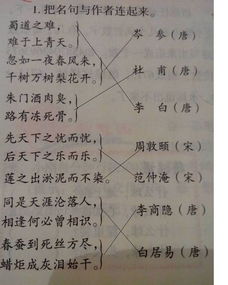 1. 把名句与作者连起来。
蜀道之难,
难于上青天。
岑 参（唐）
忽如一夜春风来,
千树万树梨花开。
杜 甫（唐）
朱门酒肉臭,
路有冻死骨。
李 白（唐）
先天下之忧而忧,
后天下之乐而乐。
周敦颐（宋）
莲之出淤泥而不染。
范仲淹（宋）
同是天涯沦落人,
相逢何必曾相识。
李商隐（唐）
春蚕到死丝方尽,
蜡炬成灰泪始干。
白居易（唐）